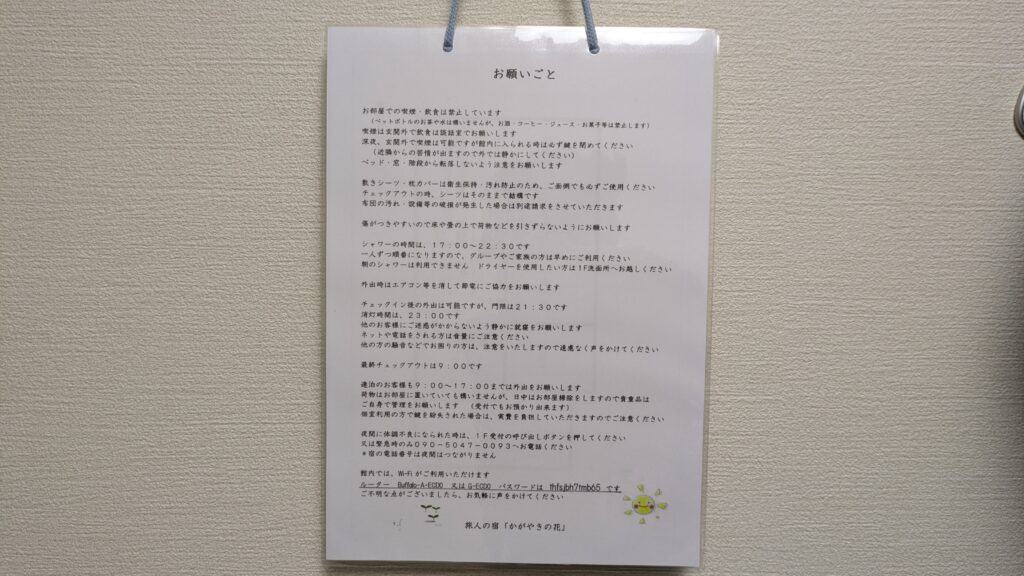 お願いごと
お部屋での喫煙・飲食は禁止しています
（ペットボトルのお茶や水は構いませんが、お酒・コーヒー・ジュース・お菓子等は禁止します）
喫煙は玄関外で飲食は談話室でお願いします
深夜、玄関外で喫煙は可能ですが館内に入られる時は必ず鍵を閉めてください
（近隣からの苦情が出ますので外では静かにしてください）
ベッド・窓・階段から転落しないよう注意をお願いします
敷きシーツ・枕カバーは衛生保持・汚れ防止のため、ご面倒でも必ずご使用ください
チェックアウトの時、シーツはそのままで結構です
布団の汚れ・設備等の破損が発生した場合は別途請求をさせていただきます
傷がつきやすいので床や畳の上で荷物などを引きずらないようにお願いします
シャワーの時間は、１７：００～２２：３０です
一人ずつ順番になりますので、グループやご家族の方は早めにご利用ください
朝のシャワーは利用できません　ドライヤーを使用したい方は１F洗面所へお越しください
外出時はエアコン等を消して節電にご協力をお願いします
チェックイン後の外出は可能ですが、門限は２１：３０です
消灯時間は、２３：００です
他のお客様にご迷惑がかからないよう静かに就寝をお願いします
ネットや電話をされる方は音量にご注意ください
他の方の騒音などでお困りの方は、注意をいたしますので遠慮なく声をかけてください
最終チェックアウトは９：００です
連泊のお客様も９：００～１７：００までは外出をお願いします
荷物はお部屋に置いていても構いませんが、日中はお部屋掃除をしますので貴重品は
ご自身で管理をお願いします　（受付でもお預かり出来ます）
個室利用の方で鍵を紛失された場合は、実費を負担していただきますのでご注意ください
夜間に体調不良になられた時は、１F受付の呼び出しボタンを押してください
又は緊急時のみ０９０－５０４７－００９３へお電話ください
＊宿の電話番号は夜間はつながりません
館内では、Wi-Fiがご利用いただけます
ルーター　Buffalo-A-ECD0　又は G-ECD0　パスワードは　thfsjbh7tmb65　です
ご不明な点がございましたら、お気軽に声をかけてください
旅人の宿「かがやきの花」